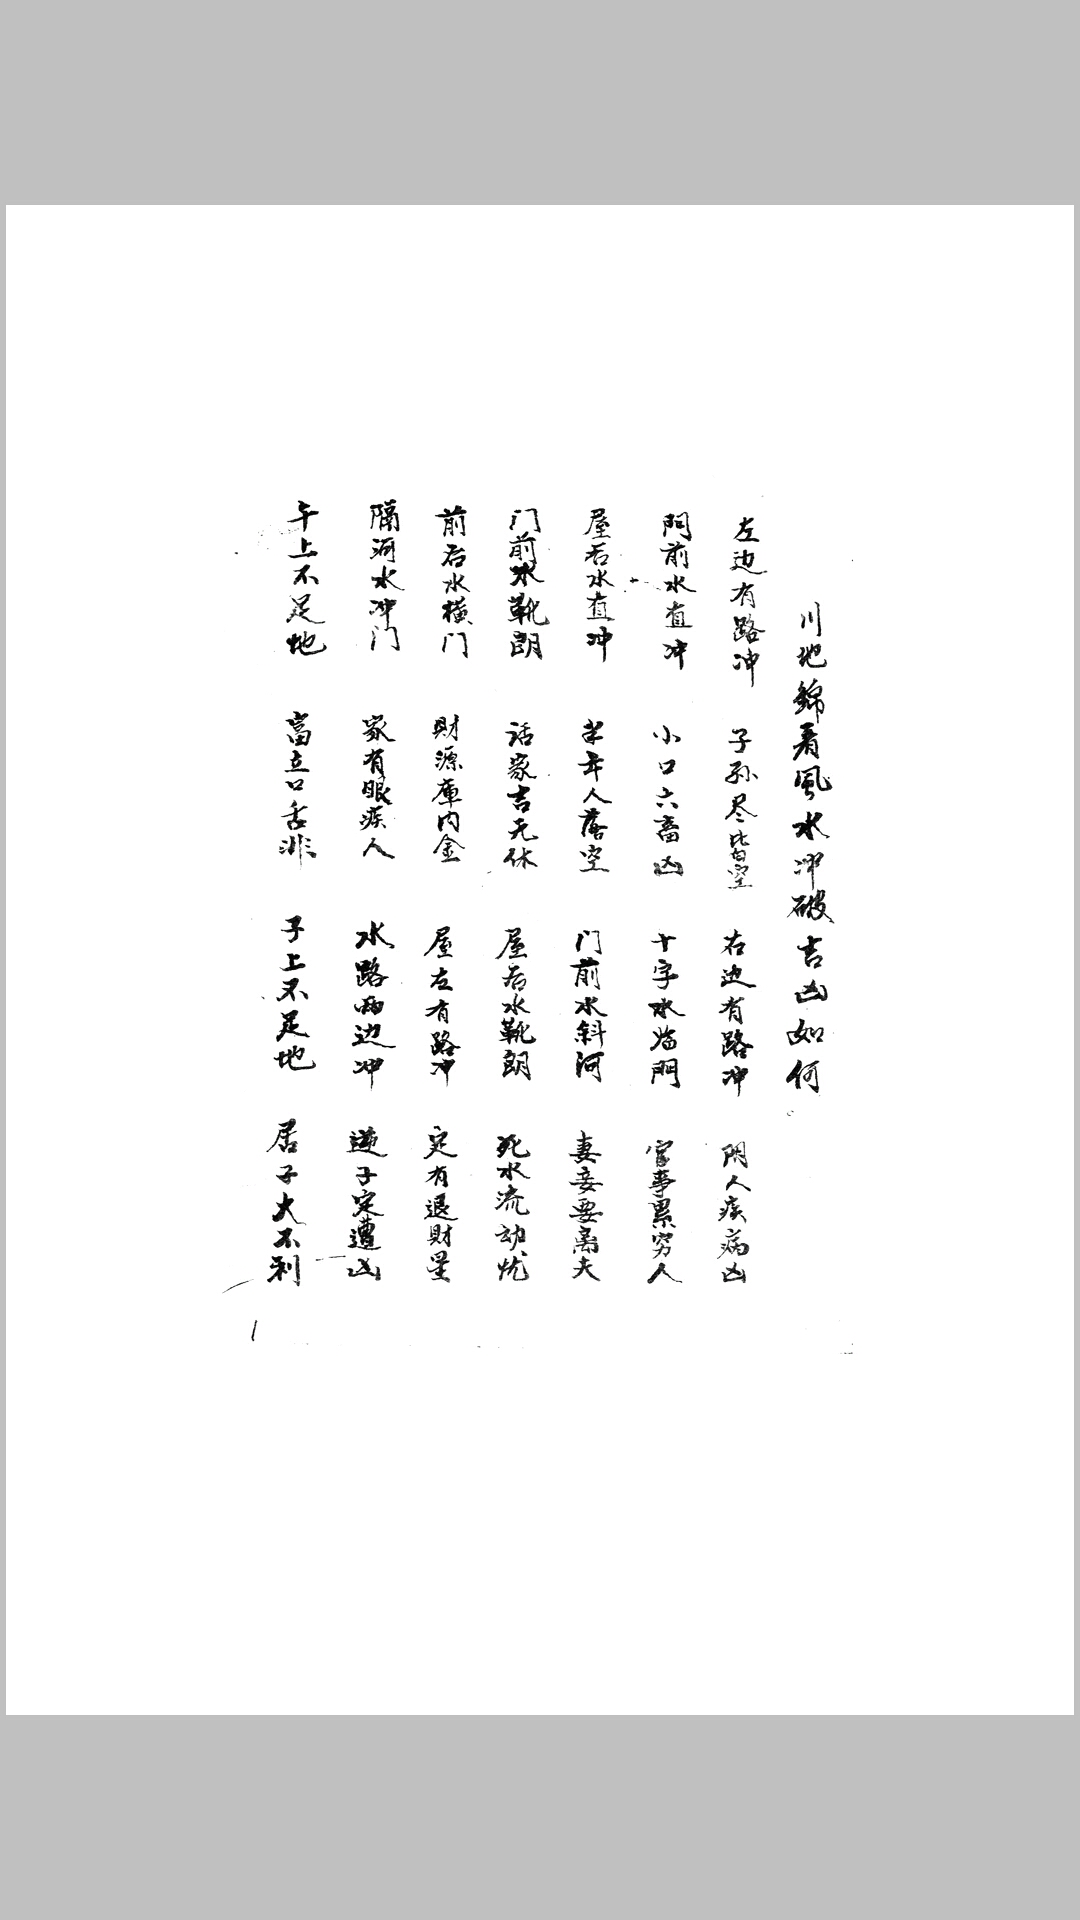 川地錦看風水冲破吉凶如何
左边有路冲 子孙尽皆空 右边有路冲 阴人疾病凶
門前水直冲 小口六畜凶 十字水当門 官事累穷人
屋后水直冲 半年人落空 门前水斜河 妻妾要离夫
门前水靴朗 话家吉无休 屋后水靴朗 死水流动忧
前后水横门 財源庫内金 屋左有路冲 定有退財星
隔河水冲门 家有眼疾人 水路两边冲 逆子定遭凶
午上不足地 富立口舌非 子上不足地 居子大不利
1